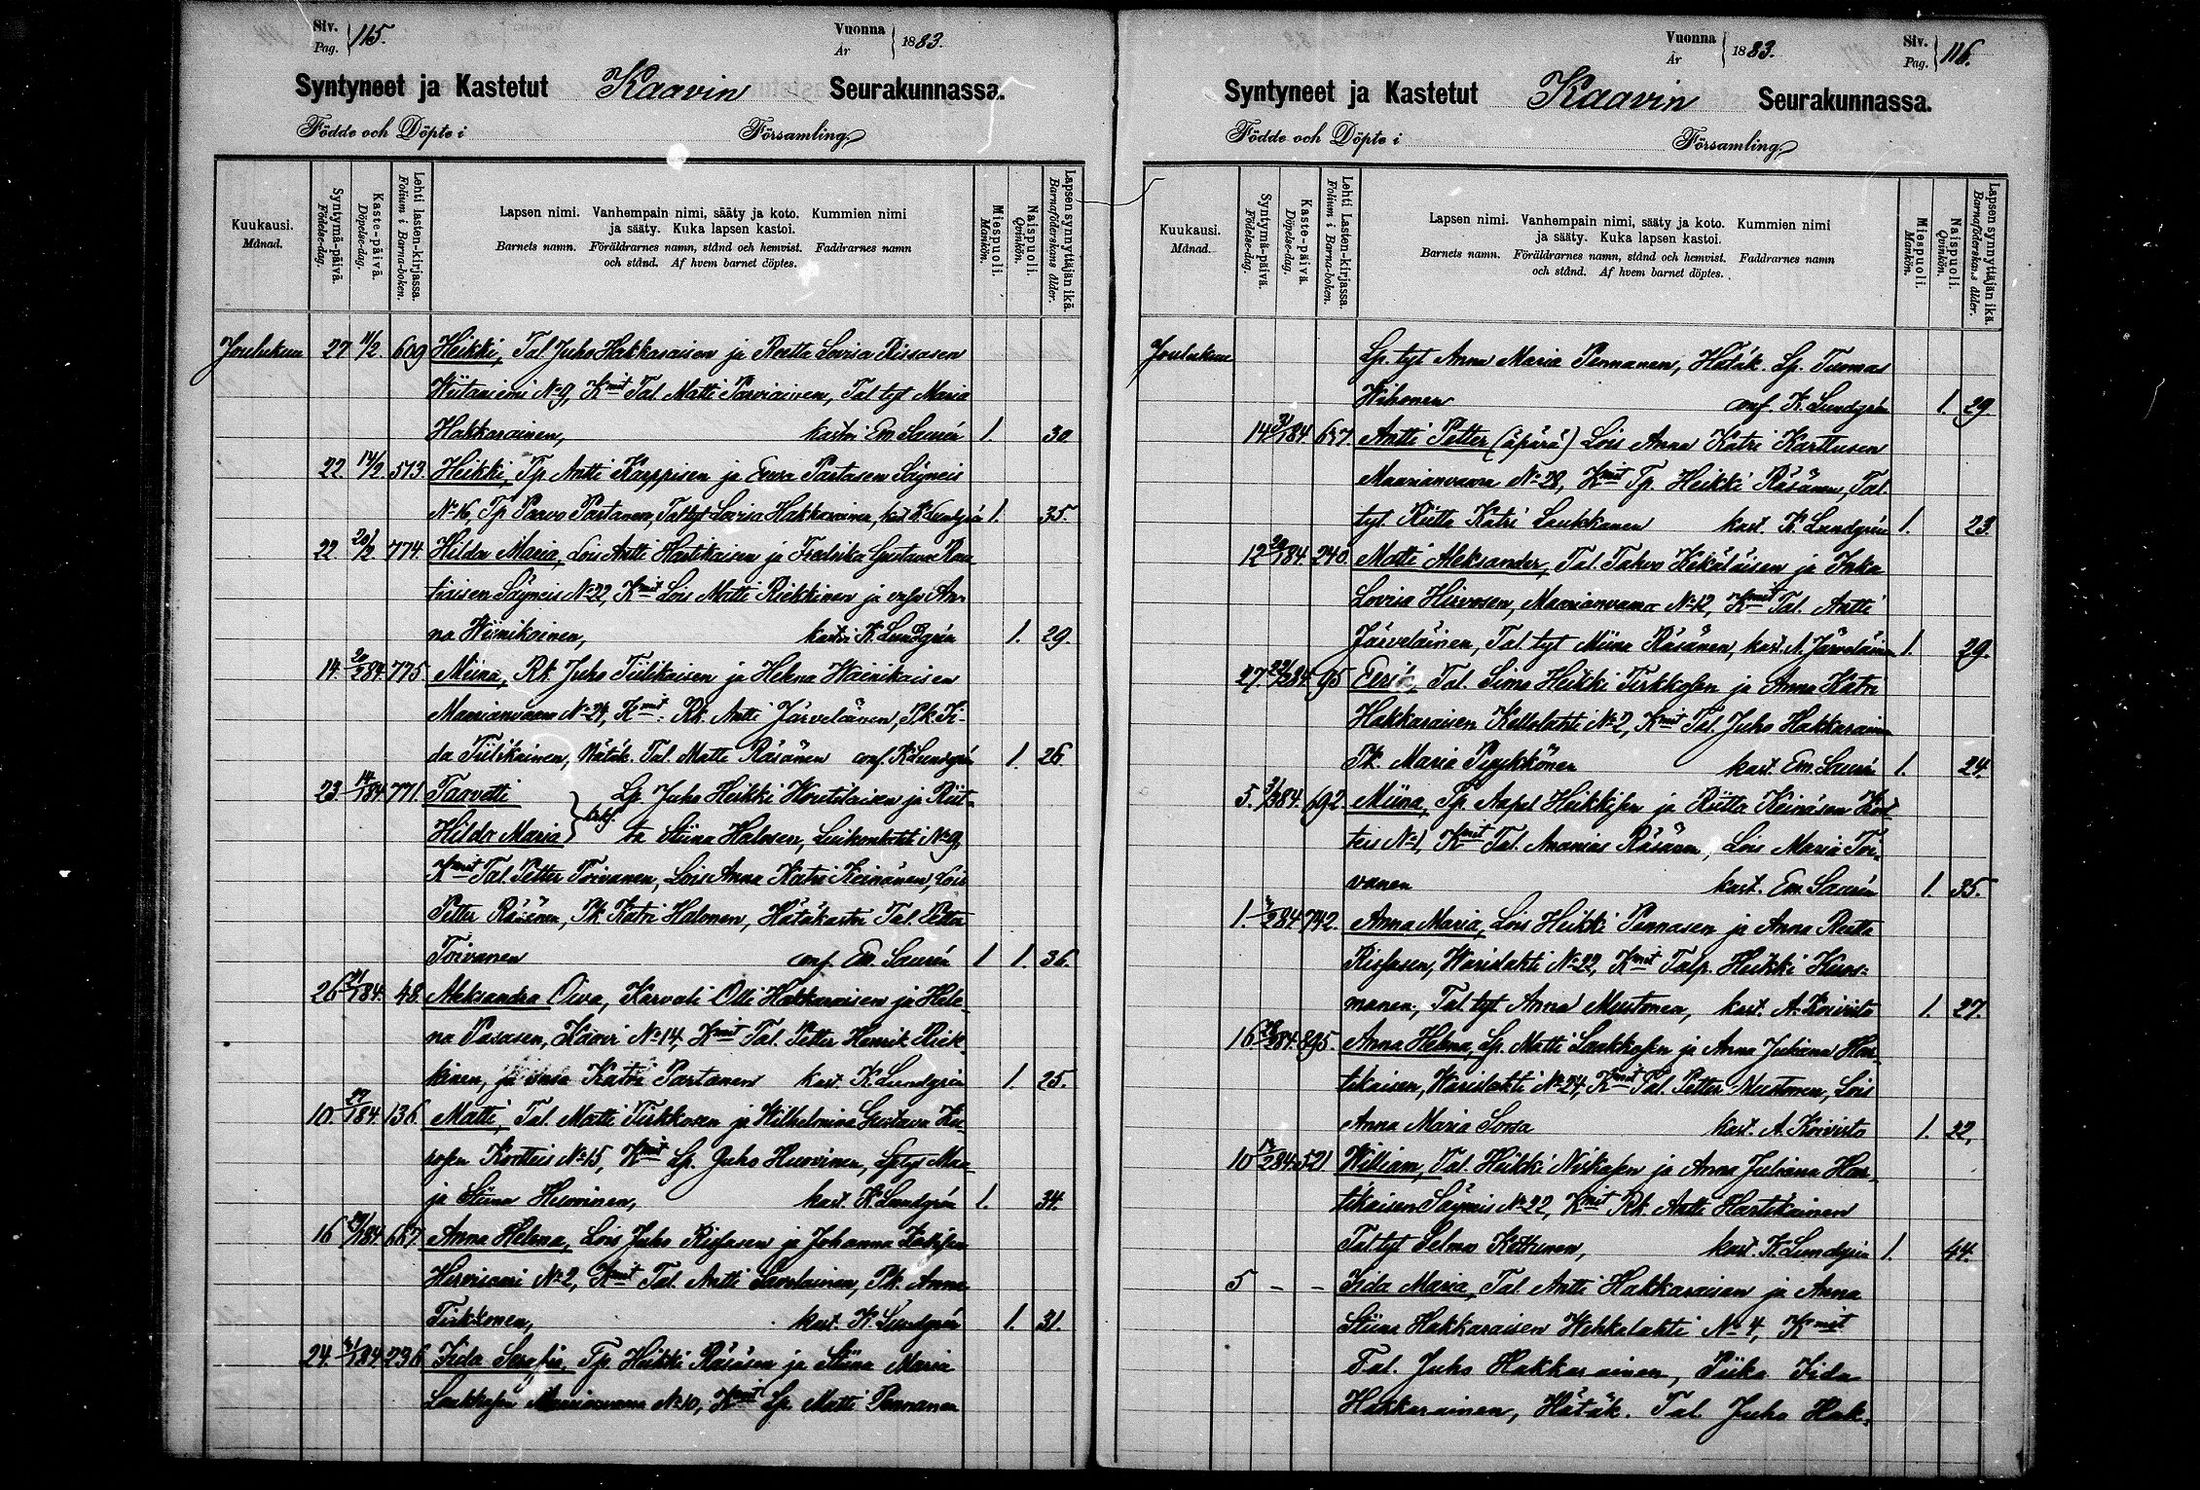 Siv. Pag. 115.
Vuonna År 1883.
Syntyneet ja Kastetut Kaavin Seurakunnassa.
Födde och Döpte i Församling.
Kuukausi. Månad.
Syntymä-päivä. Födelse-dag.
Kaste-päivä. Döpelse-dag.
Lehti lasten-kirjassa. Folium i Barna-boken.
Lapsen nimi. Vanhempain nimi, sääty ja koto. Kummien nimi
ja sääty. Kuka lapsen kastoi.
Barnets namn. Föräldrarnes namn, stånd och hemvist. Faddrarnes namn
och stånd. Af hvem barnet döptes.
Miespuoli. Mankön.
Naispuoli. Qvinkön.
Lapsen synnyttäjän ikä. Barnaföderskans ålder.
Joulukuu 27 609 Heikki, Tal Juho Hakkaraisen ja Reetta Lovisa Rissasen
Wiitaniemi No 9, Kmit Tal. Matti Parviainen, Tal tyt Maria
Hakkarainen, kastoi Em. Saurén 1. 30
22. 14/2 513. Heikki, Tp Antti Karppisen ja Eewa Partasen Säyneis
No 16, Tp Paavo Partanen, Tal tyt Lovisa Hakkarainen, kast K. Lundgrén 1. 35.
22 20/2 774. Hilda Maria, Lois Antti Hartikaisen ja Fredrika Gustava Rau
tiaisen Säyneis No 22, Kmit Lois Matti Riekkinen ja An-
na Wiinikainen, kastoi K. Lundgrén 1. 29.
14. 775. Miina, Rk. Juho Tiilikaisen ja Helena Wainikaisen
Maarianvaara No 24, Kmit: Rk. Antti Järveläinen, Pk. I-
da Tiilikainen, Hätäk. Tal. Matti Räsänen conf. K Lundgrén 1. 26
23. 771. Taavetti Lp. Juho Heikki Koutilaisen ja Riit-
Hilda Maria ta Stiina Halosen, Luikonlahti No 9,
Kmit Tal. Petter Toivanen, Lois Anna Katri Keinänen, Lois
Petter Räsänen, Pk Katri Halonen, Hätäkastoi Tal. Petter
Toivanen conf. Em. Saurén 1 1. 36.
26 48. Aleksandra Oiva, Karvali Olli Hakkaraisen ja Hele-
na Pasasen, Kaavi No 14, Kmit Tal. Petter Henrik Riek-
kinen, ja Katri Partanen kast. K. Lundgrén 1. 25.
10. 136. Matti, Tal. Matti Tirkkosen ja Wilhelmina Gustava
Kortteis No 15, Kmit Lp. Juho Huovinen, Lp tyt Mar-
ja Stiina Huovinen, kast. K. Lundgrén 1. 34.
16 667. Anna Helena, Lois Juho Rissasen ja Johanna
Hirvisaari No 2, Kmit Tal. Antti Savolainen, Pk. Anna
Tirkkonen, kast. K. Lundgrén 1. 31.
24. 236. Iida Serafia, Tp. Heikki Räsäsen ja Stiina Maria
Laukkasen Maarianvaara No 10, Kmit Lp. Matti Pennanen
Vuonna År 1883.
Siv. Pag. 116.
Syntyneet ja Kastetut Kaavin Seurakunnassa.
Födde och Döpte i Församling.
Kuukausi. Månad.
Syntymä-päivä. Födelse-dag.
Kaste-päivä. Döpelse-dag.
Lehti Lasten-kirjassa. Folium i Barna-boken.
Lapsen nimi. Vanhempain nimi, sääty ja koto. Kummien nimi
ja sääty. Kuka lapsen kastoi.
Barnets namn. Föräldrarnes namn, stånd och hemvist. Faddrarnes namn
och stånd. Af hvem barnet döptes.
Miespuoli. Mankön.
Naispuoli. Qvinkön.
Lapsen synnyttäjän ikä. Barnaföderskans ålder.
Joulukuu Lp. tyt Anna Maria Pennanen, Hätäk. Lp. Tuomas
Wihonen conf. K. Lundgrén 1. 29.
14 Antti Petter (äpärä) Lois Anna Katri Karttusen
Maarianvaara No 28, Kmit Tp. Heikki Räsänen, Tal
tyt. Riitta Katri Laukkanen kast. K. Lundgrén 1. 23.
12 240. Matti Aleksander, Tal. Tahvo Kekäläisen ja Inka
Lovisa Hirvosen, Maarianvaara No 12, Kmit Tal. Antti
Järveläinen, Tal. tyt Miina Räsänen, kast. A. Järveläinen 1. 29.
27. 95 Eeri Tal. Simo Heikki Tirkkosen ja Anna Katri
Hakkaraisen Kellolahti No 2, Kmit Tal. Juho Hakkarainen
Pk. Maria Pyykkönen kast. Em. Saurén 1. 24.
5. 692. Miina, Tp. Aapel Heikkisen ja Riitta Keinäsen Kort
teis No 1, Kmit Tal. Ananias Räsänen, Lois Maria Toi-
vanen kast. Em. Saurén 1. 35.
1. 742. Anna Maria, Lois Heikki Pennasen ja Anna Reetta
Rissasen, Warislahti No 22, Kmit Talp. Heikki Kuos-
manen, Tal. tyt. Anna Mustonen, kast. A. Koivisto 1. 27.
16 895. Anna Helena, Lp. Matti Laakkosen ja Anna Juliana Har-
tikaisen, Warislahti No 24, Kmit Tal. Petter Mustonen, Lois
Anna Maria Sorsa kast. A. Koivisto 1. 22.
10 521 William, Tal. Heikki Niskasen ja Anna Juliana Har-
tikaisen Säyneis No 22, Kmit Rk. Antti Hartikainen
Tal tyt Selma Kettunen, kast. K. Lundgrén 1. 44.
5 - - Iida Maria, Tal Antti Hakkaraisen ja Anna
Stiina Hakkaraisen Wehkalahti No 4, Kmit
Tal. Juho Hakkarainen, Piika Iida
Hakkarainen, Hätäk. Tal. Juho Hak-